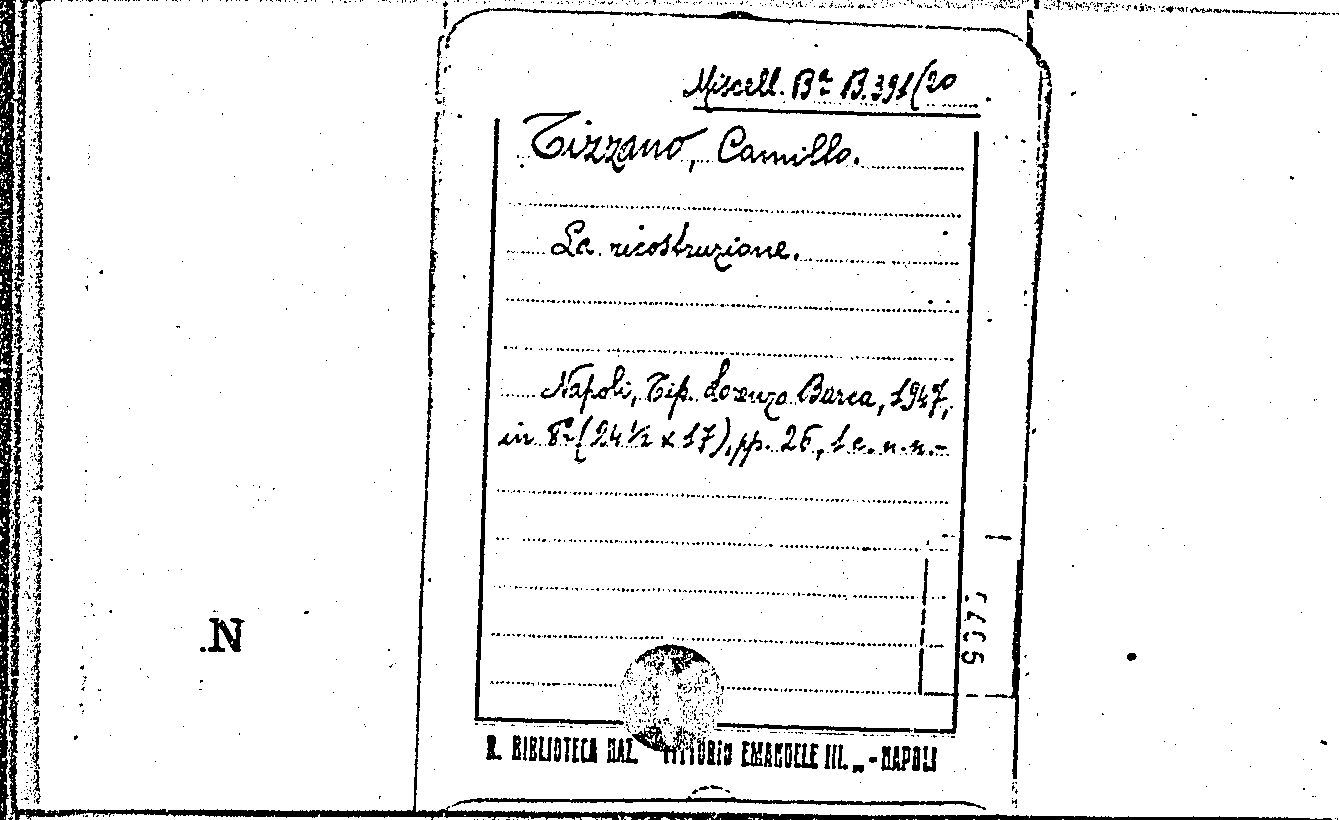 Miscell. Bª B.391(20
Tizzano, Camillo.
La ricostruzione.
Napoli, Tip. Lorenzo Barca, 1947,
in 8º (24 ½ x 17), pp. 26, 1 c. n. n.-
.N
R. BIBLIOTECA NAZ. VITTORIO EMANUELE III. „ - NAPOLI